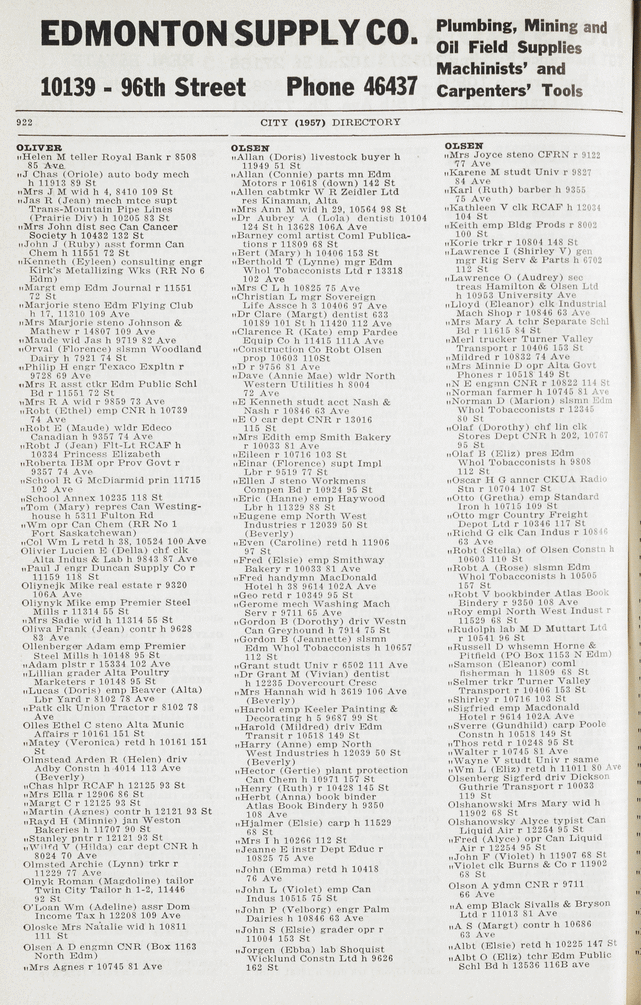 EDMONTON SUPPLY CO.
10139 - 96th Street Phone 46437
Plumbing, Mining and
Oil Field Supplies
Machinists' and
Carpenters' Tools
922 CITY (1957) DIRECTORY
OLIVER
„Helen M teller Royal Bank r 8508
85 Ave
„J Chas (Oriole) auto body mech
h 11913 89 St
„Mrs J M wid h 4, 8410 109 St
„Jas R (Jean) mech mtce supt
Trans-Mountain Pipe Lines
(Prairie Div) h 10205 83 St
„Mrs John dist sec Can Cancer
Society h 10432 132 St
„John J (Ruby) asst formn Can
Chem h 11551 72 St
„Kenneth (Eyleen) consulting engr
Kirk's Metallizing Wks (RR No 6
Edm)
„Margt emp Edm Journal r 11551
72 St
„Marjorie steno Edm Flying Club
h 17, 11310 109 Ave
„Mrs Marjorie steno Johnson &
Mathew r 14807 109 Ave
„Maude wid Jas h 9719 82 Ave
„Orval (Florence) slsmn Woodland
Dairy h 7921 74 St
„Philip H engr Texaco Expltn r
9728 69 Ave
„Mrs R asst ctkr Edm Public Schl
Bd r 11551 72 St
„Mrs R A wid r 9859 73 Ave
„Robt (Ethel) emp CNR h 10739
74 Ave
„Robt E (Maude) wldr Edeco
Canadian h 9357 74 Ave
„Robt J (Jean) Flt-Lt RCAF h
10334 Princess Elizabeth
„Roberta IBM opr Prov Govt r
9357 74 Ave
„School R G McDiarmid prin 11715
102 Ave
„School Annex 10235 118 St
„Tom (Mary) repres Can Westing-
house h 5311 Fulton Rd
„Wm opr Can Chem (RR No 1
Fort Saskatchewan)
„Col Wm L retd h 38, 10524 100 Ave
Olivier Lucien E (Della) chf clk
Alta Indus & Lab h 9843 87 Ave
„Paul J engr Duncan Supply Co r
11159 118 St
Oliynejk Mike real estate r 9320
106A Ave
Oliynyk Mike emp Premier Steel
Mills r 11314 55 St
„Mrs Sadie wid h 11314 55 St
Oliwa Frank (Jean) contr h 9628
83 Ave
Ollenberger Adam emp Premier
Steel Mills h 10148 95 St
„Adam plstr r 15334 102 Ave
„Lillian grader Alta Poultry
Marketers r 10148 95 St
„Lucas (Doris) emp Beaver (Alta)
Lbr Yard r 8102 78 Ave
„Patk clk Union Tractor r 8102 78
Ave
Olles Ethel C steno Alta Munic
Affairs r 10161 151 St
„Matey (Veronica) retd h 10161 151
St
Olmstead Arden R (Helen) driv
Adby Constn h 4014 113 Ave
(Beverly)
„Chas hlpr RCAF h 12125 93 St
„Mrs Ella r 12906 86 St
„Margt C r 12125 93 St
„Martin (Agnes) contr h 12121 93 St
„Rayd H (Minnie) jan Weston
Bakeries h 11707 90 St
„Stanley pntr r 12121 93 St
„Wilfd V (Hilda) car dept CNR h
8024 70 Ave
Olmsted Archie (Lynn) trkr r
11229 77 Ave
Olnyk Roman (Magdoline) tailor
Twin City Tailor h 1-2, 11446
92 St
O'Loan Wm (Adeline) assr Dom
Income Tax h 12208 109 Ave
Oloske Mrs Natalie wid h 10811
111 St
Olsen A D engmn CNR (Box 1163
North Edm)
„Mrs Agnes r 10745 81 Ave
OLSEN
„Allan (Doris) livestock buyer h
11949 51 St
„Allan (Connie) parts mn Edm
Motors r 10618 (down) 142 St
„Allen cabtmkr W R Zeidler Ltd
res Kinaman, Alta
„Mrs Ann M wid h 29, 10564 98 St
„Dr Aubrey A (Lola) dentist 10104
124 St h 13628 106A Ave
„Barney coml artist Coml Publica-
tions r 11809 68 St
„Bert (Mary) h 10406 153 St
„Berthold T (Lynne) mgr Edm
Whol Tobacconists Ltd r 13318
102 Ave
„Mrs C L h 10825 75 Ave
„Christian L mgr Sovereign
Life Assce h 3 10406 97 Ave
„Dr Clare (Margt) dentist 633
10189 101 St h 11420 112 Ave
„Clarence R (Kate) emp Pardee
Equip Co h 11415 111A Ave
„Construction Co Robt Olsen
prop 10603 110St
„D r 9756 81 Ave
„Dave (Annie Mae) wldr North
Western Utilities h 8004
72 Ave
„E Kenneth studt acct Nash &
Nash r 10846 63 Ave
„E O car dept CNR r 13016
115 St
„Mrs Edith emp Smith Bakery
r 10033 81 Ave
„Eileen r 10716 103 St
„Einar (Florence) supt Impl
Lbr r 9519 77 St
„Ellen J steno Workmens
Compen Bd r 10924 95 St
„Eric (Hanne) emp Haywood
Lbr h 11329 88 St
„Eugene emp North West
Industries r 12039 50 St
(Beverly)
„Even (Caroline) retd h 11906
97 St
„Fred (Elsie) emp Smithway
Bakery r 10033 81 Ave
„Fred handymn MacDonald
Hotel h 38 9614 102A Ave
„Geo retd r 10349 95 St
„Gerome mech Washing Mach
Serv r 9711 65 Ave
„Gordon B (Dorothy) driv Westn
Can Greyhound h 7914 75 St
„Gordon B (Jeannette) slsmn
Edm Whol Tobacconists h 10657
112 St
„Grant studt Univ r 6502 111 Ave
„Dr Grant M (Vivian) dentist
h 12235 Dovercourt Cresc
„Mrs Hannah wid h 3619 106 Ave
(Beverly)
„Harold emp Keeler Painting &
Decorating h 5 9687 99 St
„Harold (Mildred) driv Edm
Transit r 10518 149 St
„Harry (Anne) emp North
West Industries h 12039 50 St
(Beverly)
„Hector (Gertie) plant protection
Can Chem h 10971 157 St
„Henry (Ruth) r 10428 145 St
„Herbt (Anna) book binder
Atlas Book Bindery h 9350
108 Ave
„Hjalmer (Elsie) carp h 11529
68 St
„Mrs I h 10266 112 St
„Jeanne E instr Dept Educ r
10825 75 Ave
„John (Emma) retd h 10418
76 Ave
„John L (Violet) emp Can
Indus 10515 75 St
„John P (Velborg) engr Palm
Dairies h 10846 63 Ave
„John S (Elsie) grader opr r
11004 153 St
„Jorgen (Ebba) lab Shoquist
Wicklund Constn Ltd h 9626
162 St
OLSEN
„Mrs Joyce steno CFRN r 9122
77 Ave
„Karene M studt Univ r 9827
84 Ave
„Karl (Ruth) barber h 9355
75 Ave
„Kathleen V clk RCAF h 12034
104 St
„Keith emp Bldg Prods r 8002
100 St
„Korie trkr r 10804 148 St
„Lawrence I (Shirley V) gen
mgr Rig Serv & Parts h 6702
112 St
„Lawrence O (Audrey) sec
treas Hamilton & Olsen Ltd
h 10953 University Ave
„Lloyd (Eleanor) clk Industrial
Mach Shop r 10846 63 Ave
„Mrs Mary A tchr Separate Schl
Bd r 11615 84 St
„Merl trucker Turner Valley
Transport r 10406 153 St
„Mildred r 10832 74 Ave
„Mrs Minnie D opr Alta Govt
Phones r 10518 149 St
„N E engmn CNR r 10822 114 St
„Norman farmer h 10745 81 Ave
„Norman D (Marion) slsmn Edm
Whol Tobacconists r 12345
80 St
„Olaf (Dorothy) chf lin clk
Stores Dept CNR h 202, 10767
95 St
„Olaf B (Eliz) pres Edm
Whol Tobacconists h 9808
112 St
„Oscar H G anncr CKUA Radio
Stn r 10704 107 St
„Otto (Gretha) emp Standard
Iron h 10715 109 St
„Otto mgr Country Freight
Depot Ltd r 10346 117 St
„Richd G clk Can Indus r 10846
63 Ave
„Robt (Stella) of Olsen Constn h
10603 110 St
„Robt A (Rose) slsmn Edm
Whol Tobacconists h 10505
157 St
„Robt V bookbinder Atlas Book
Bindery r 9350 108 Ave
„Roy empl North West Indust r
11529 68 St
„Rudolph lab M D Muttart Ltd
r 10541 96 St
„Russell D whsemn Horne &
Pitfield (PO Box 1153 N Edm)
„Samson (Eleanor) coml
fisherman h 11809 68 St
„Selmer trkr Turner Valley
Transport r 10406 153 St
„Shirley r 10716 103 St
„Sigfried emp Macdonald
Hotel r 9614 102A Ave
„Sverre (Gundhild) carp Poole
Constn h 10518 149 St
„Thos retd r 10248 95 St
„Walter r 10745 81 Ave
„Wayne V studt Univ r same
„Wm L (Eliz) retd h 11011 80 Ave
Olsenberg Sigferd driv Dickson
Guthrie Transport r 10033
119 St
Olshanowski Mrs Mary wid h
11902 68 St
Olshanowsky Alyce typist Can
Liquid Air r 12254 95 St
„Fred (Alyce) opr Can Liquid
Air r 12254 95 St
„John F (Violet) h 11907 68 St
„Violet clk Burns & Co r 11902
68 St
Olson A ydmn CNR r 9711
66 Ave
„A emp Black Sivalls & Bryson
Ltd r 11013 81 Ave
„A S (Margt) contr h 10686
63 Ave
„Albt (Elsie) retd h 10225 147 St
„Albt O (Eliz) tchr Edm Public
Schl Bd h 13536 116B ave